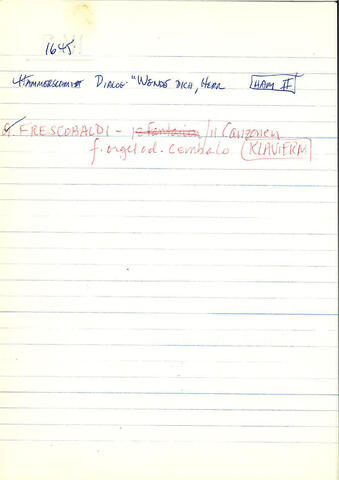 1645
HAMMERSCHMIDT DIALOG "WENDE DICH, HERR HAM II
G FRESCOBALDI - 12 Fantasien / 11 Canzonen
f. orgel od. cembalo KLAVIERM